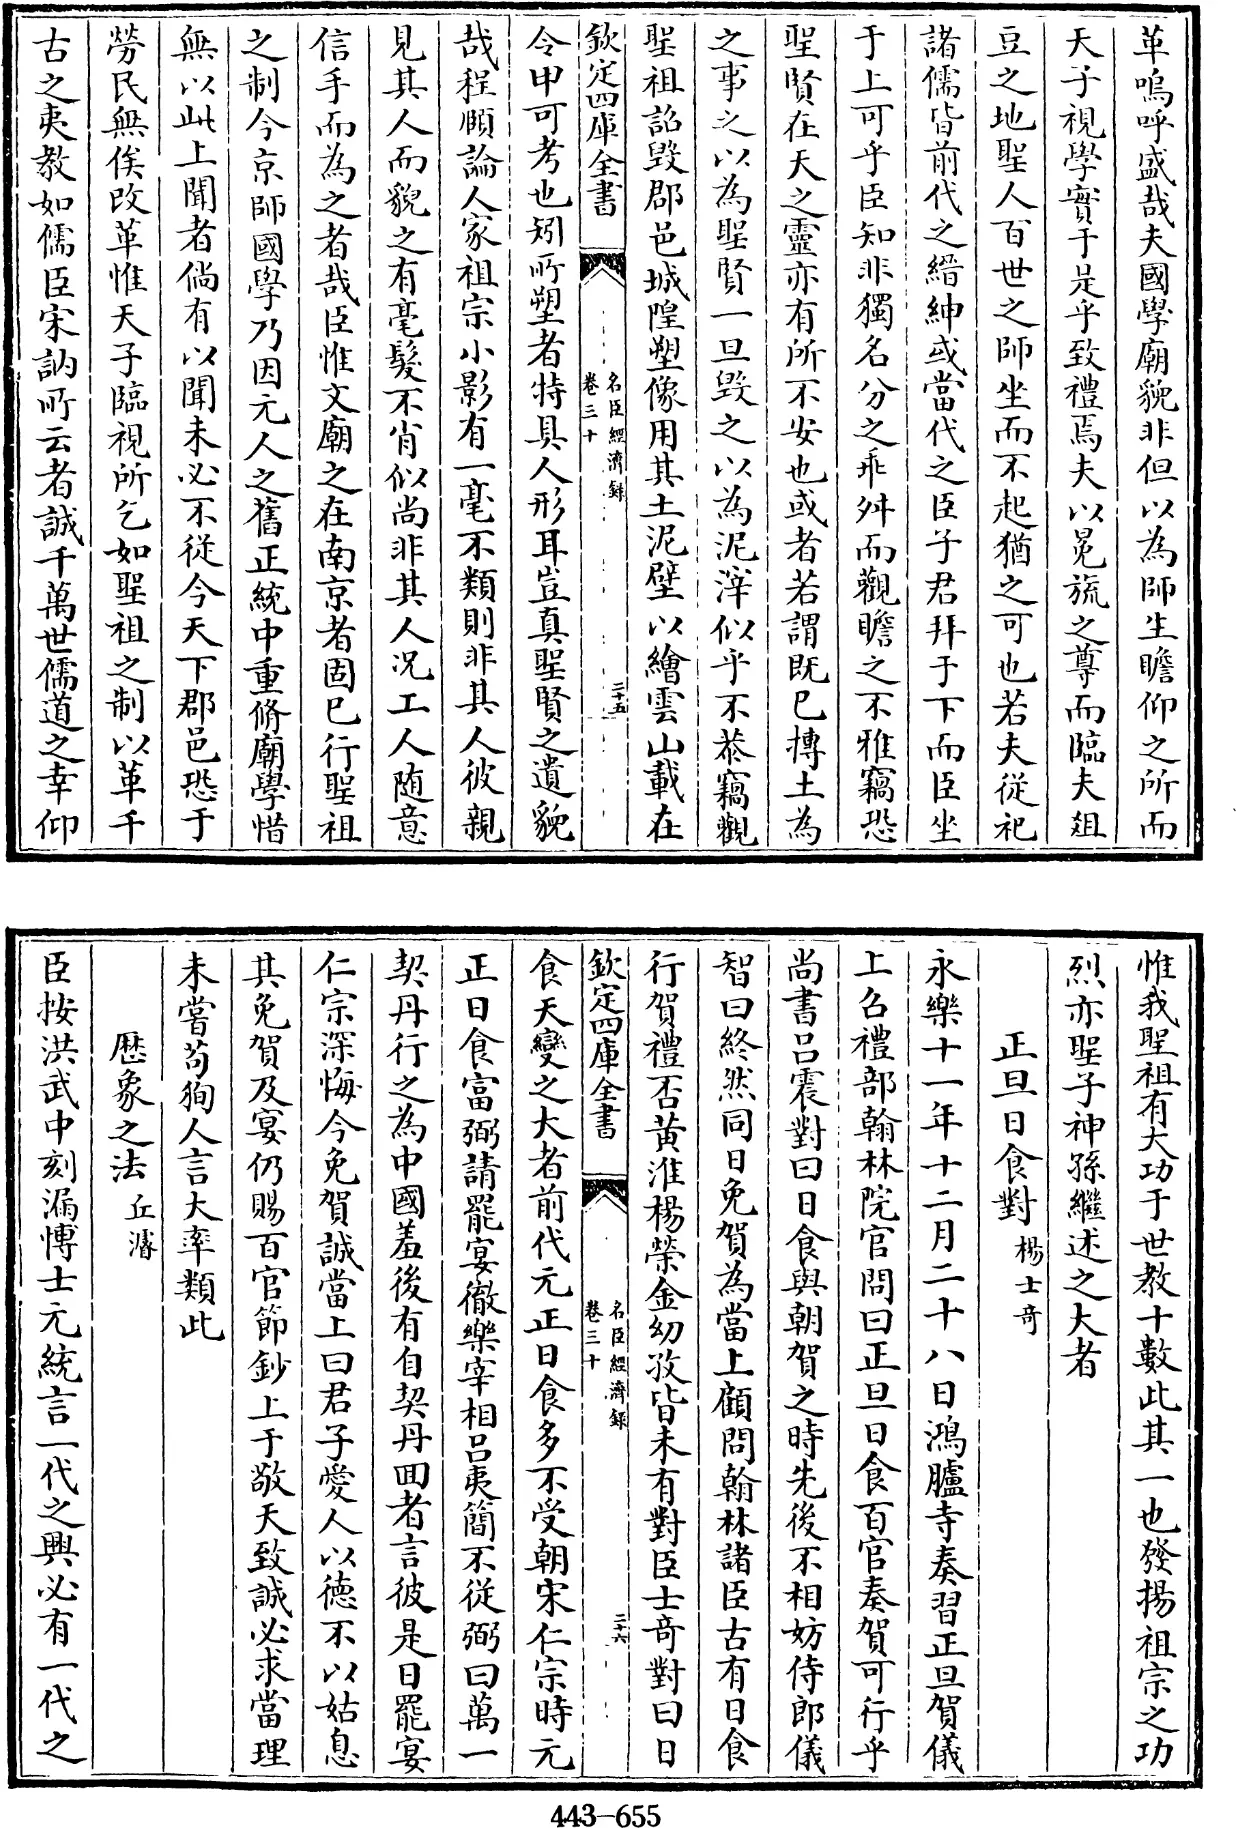 革嗚呼盛哉夫國學廟貌非但以為師生瞻仰之所而
天子視學實于是乎致禮焉夫以冕旒之尊而臨夫俎
豆之地聖人百世之師坐而不起猶之可也若夫從祀
諸儒皆前代之縉紳或當代之臣子君拜于下而臣坐
于上可乎臣知非獨名分之乖舛而觀瞻之不雅竊恐
聖賢在天之靈亦有所不安也或者若謂既已摶土為
之事之以為聖賢一旦毀之以為泥滓似乎不恭竊觀
聖祖詔毀郡邑城隍塑像用其土泥壁以繪雲山載在
欽定四庫全書
名臣經濟録
卷三十
二十五
令甲可考也矧所塑者特具人形耳豈真聖賢之遺貌
哉程頤論人家祖宗小影有一毫不類則非其人彼親
見其人而貌之有毫髮不肖似尚非其人况工人随意
信手而為之者哉臣惟文廟之在南京者固已行聖祖
之制今京師國學乃因元人之舊正統中重脩廟學惜
無以此上聞者倘有以聞未必不從今天下郡邑恐于
勞民無俟改革惟天子臨視所乞如聖祖之制以革千
古之夷教如儒臣宋訥所云者誠千萬世儒道之幸仰
惟我聖祖有大功于世教十數此其一也發揚祖宗之功
烈亦聖子神孫繼述之大者
正旦日食對 楊士奇
永樂十一年十二月二十八日鴻臚寺奏習正旦賀儀
上召禮部翰林院官問曰正旦日食百官奏賀可行乎
尚書吕震對曰日食與朝賀之時先後不相妨侍郎儀
智曰終然同日免賀為當上顧問翰林諸臣古有日食
行賀禮否黄淮楊榮金幼孜皆未有對臣士奇對曰日
欽定四庫全書
名臣經濟録
卷三十
二十六
食天變之大者前代元正日食多不受朝宋仁宗時元
正日食富弼請罷宴徹樂宰相吕夷簡不從弼曰萬一
契丹行之為中國羞後有自契丹回者言彼是日罷宴
仁宗深悔今免賀誠當上曰君子愛人以德不以姑息
其免賀及宴仍賜百官節鈔上于敬天致誠必求當理
未嘗苟狥人言大率類此
歴象之法 丘濬
臣按洪武中刻漏博士元統言一代之興必有一代之
443-655